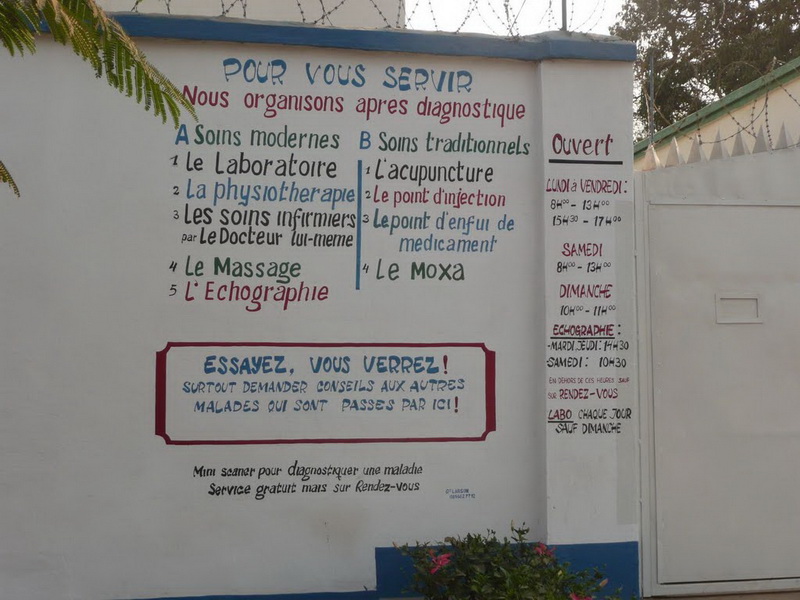 POUR VOUS SERVIR
Nous organisons apres diagnostique
A Soins modernes
1 Le Laboratoire
2 La physiotherapie
3 Les soins infirmiers
par Le Docteur lui-meme
4 Le Massage
5 L'Echographie
B Soins traditionnels
1 L'acupuncture
2 Le point d'injection
3 Le point d'enfui de
medicament
4 Le Moxa
ESSAYEZ, VOUS VERREZ!
SURTOUT DEMANDER CONSEILS AUX AUTRES
MALADES QUI SONT PASSES PAR ICI!
Mini scaner pour diagnostiquer une maladie
Service gratuit mais sur Rendez-vous
Ouvert
LUNDI à VENDREDI:
8H00 - 13H00
15H30 - 17H00
SAMEDI
8H00 - 13H00
DIMANCHE
10H00 - 11H00
ECHOGRAPHIE:
-MARDI.JEUDI: 14H30
-SAMEDI: 10H30
EN DEHORS DE CES HEURES .SAUF
SUR RENDEZ-VOUS
LABO CHAQUE JOUR
SAUF DIMANCHE